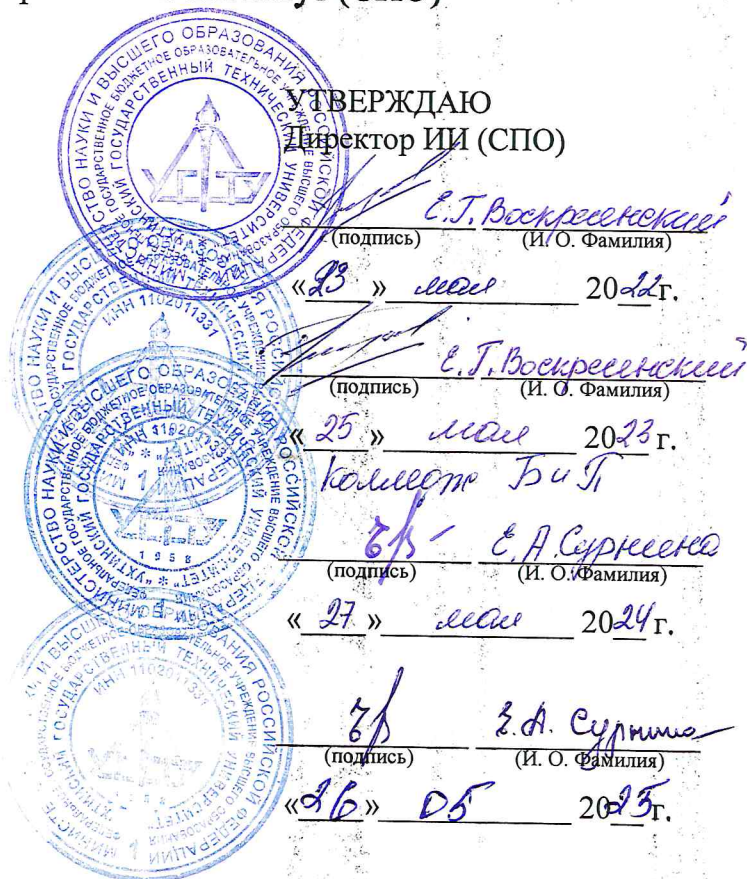 (СПО)
УТВЕРЖДАЮ
Директор ИИ (СПО)
Е.Т. Воскресенский
(подпись) (И. О. Фамилия)
«23» мая 2022г.
Е.Т. Воскресенский
(подпись) (И. О. Фамилия)
«25» мая 2023 г.
Колледж БиП
Е.А. Сурнина
(подпись) (И. О. Фамилия)
«27» мая 2024 г.
Е.А. Сурнина
(подпись) (И. О. Фамилия)
«26» 05 2025г.
МИНИСТЕРСТВО НАУКИ И ВЫСШЕГО ОБРАЗОВАНИЯ РОССИЙСКОЙ ФЕДЕРАЦИИ
ФЕДЕРАЛЬНОЕ ГОСУДАРСТВЕННОЕ БЮДЖЕТНОЕ ОБРАЗОВАТЕЛЬНОЕ УЧРЕЖДЕНИЕ ВЫСШЕГО ОБРАЗОВАНИЯ
УХТИНСКИЙ ГОСУДАРСТВЕННЫЙ ТЕХНИЧЕСКИЙ УНИВЕРСИТЕТ
УГТУ
ИНН 1102011331
1958
1